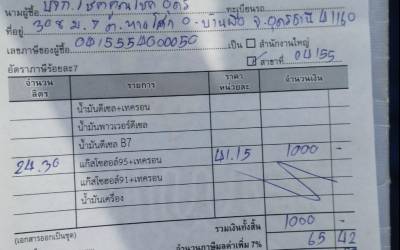 นามผู้ซื้อ บจก.โชคคูณโชค อุดร ทะเบียนรถ
ที่อยู่ 308 ม.7 ต. อ.บ้านผือ จ.อุดรธานี 41160
เลขภาษีของผู้ซื้อ 0415554000050 เป็น สำนักงานใหญ่
อัตราภาษีร้อยละ7 สาขาที่ 04155
จำนวนลิตร รายการ ราคาหน่วยละ จำนวนเงิน
น้ำมันดีเซล+เทครอน
น้ำมันพาวเวอร์ดีเซล
น้ำมันดีเซล B7
24.30 แก๊สโซฮอล์95+เทครอน 41.15 1000 -
แก๊สโซฮอล์91+เทครอน
น้ำมันเครื่อง
(เอกสารออกเป็นชุด) รวมเงินทั้งสิ้น 1000 -
จำนวนภาษีมูลค่าเพิ่ม 7% 65 42